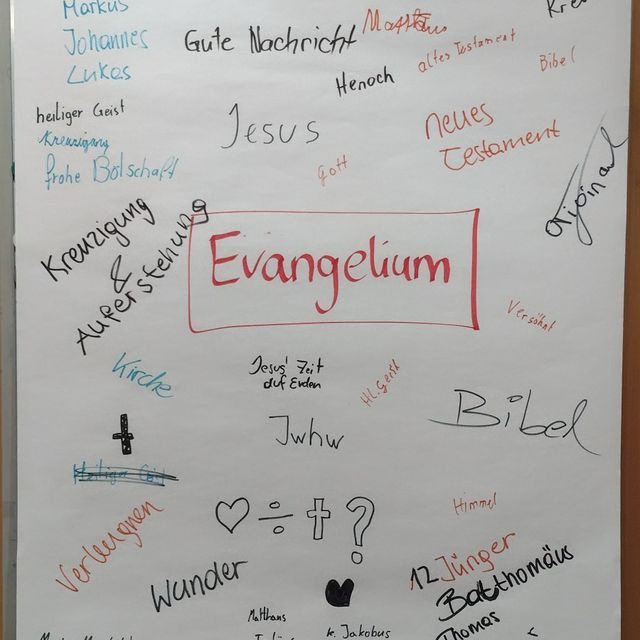 Markus
Johannes
Lukas
Gute Nachricht
Matthäus
altes Testament
Bibel
Henoch
heiliger Geist
Kreuzigung
frohe Botschaft
Jesus
neues
Testament
Gott
Kreuzigung
&
Auferstehung
Evangelium
Versöhnt
Kirche
Jesus' Zeit
auf Erden
Hl. Geist
Bibel
Jwhw
Heiliger Geist
Himmel
Verleugnen
Wunder
12 Jünger
Batthomäus
Thomas
Matthäus
k. Jakobus